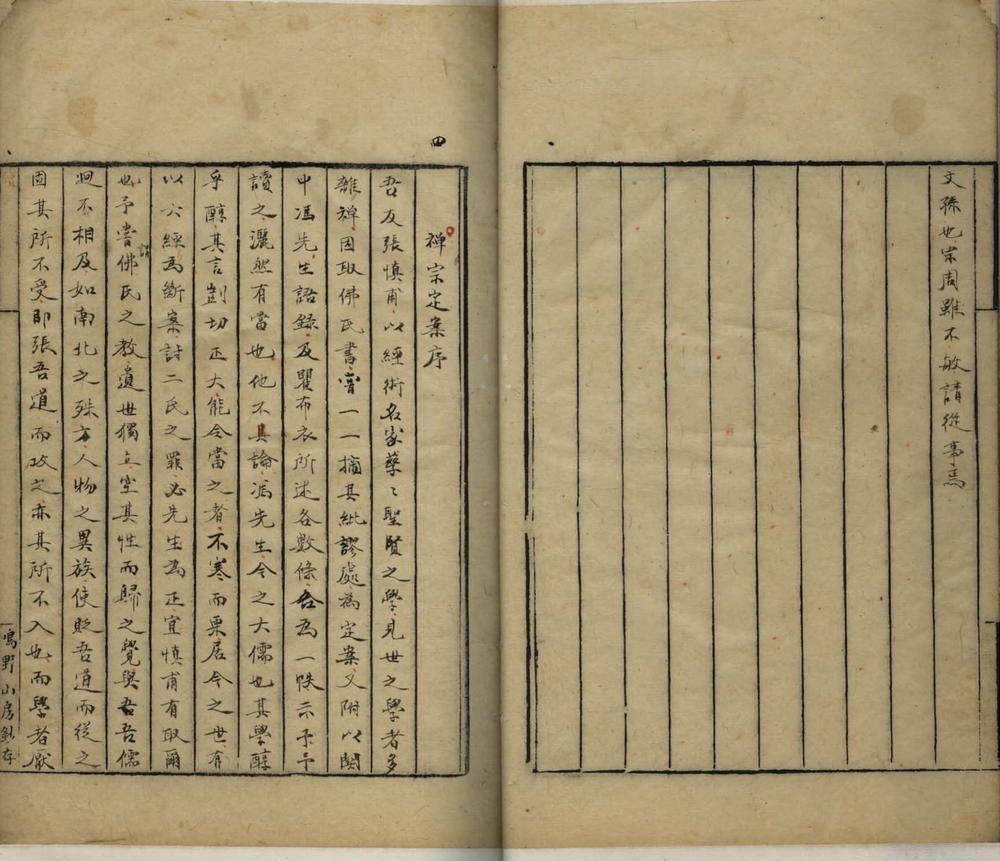 文孫也宗周雖不敏請從事焉
四
禅宗定案序
吾友張慎甫以經術名家藜〻聖賢之學見世之學者多
雜禅因取佛氏書嘗一一摘其紕謬處為定案又附以関
中馮先生語録及瞿布衣所述各數條合為一帙示予予
讀之灑然有當也他不具論馮先生今之大儒也其學醇
乎醇其言剴切正大能令當之者不寒而栗居今之世有
以六經為斷案討二氏之罪必先生為正宜慎甫有取爾
也予嘗謂佛氏之教遺世獨立空其性而歸之覺與吾吾儒
迥不相及如南北之殊方人物之異族使貶吾道而從之
固其所不受即張吾道而攻之亦其所不入也而學者厭
鳴野山房鈔存